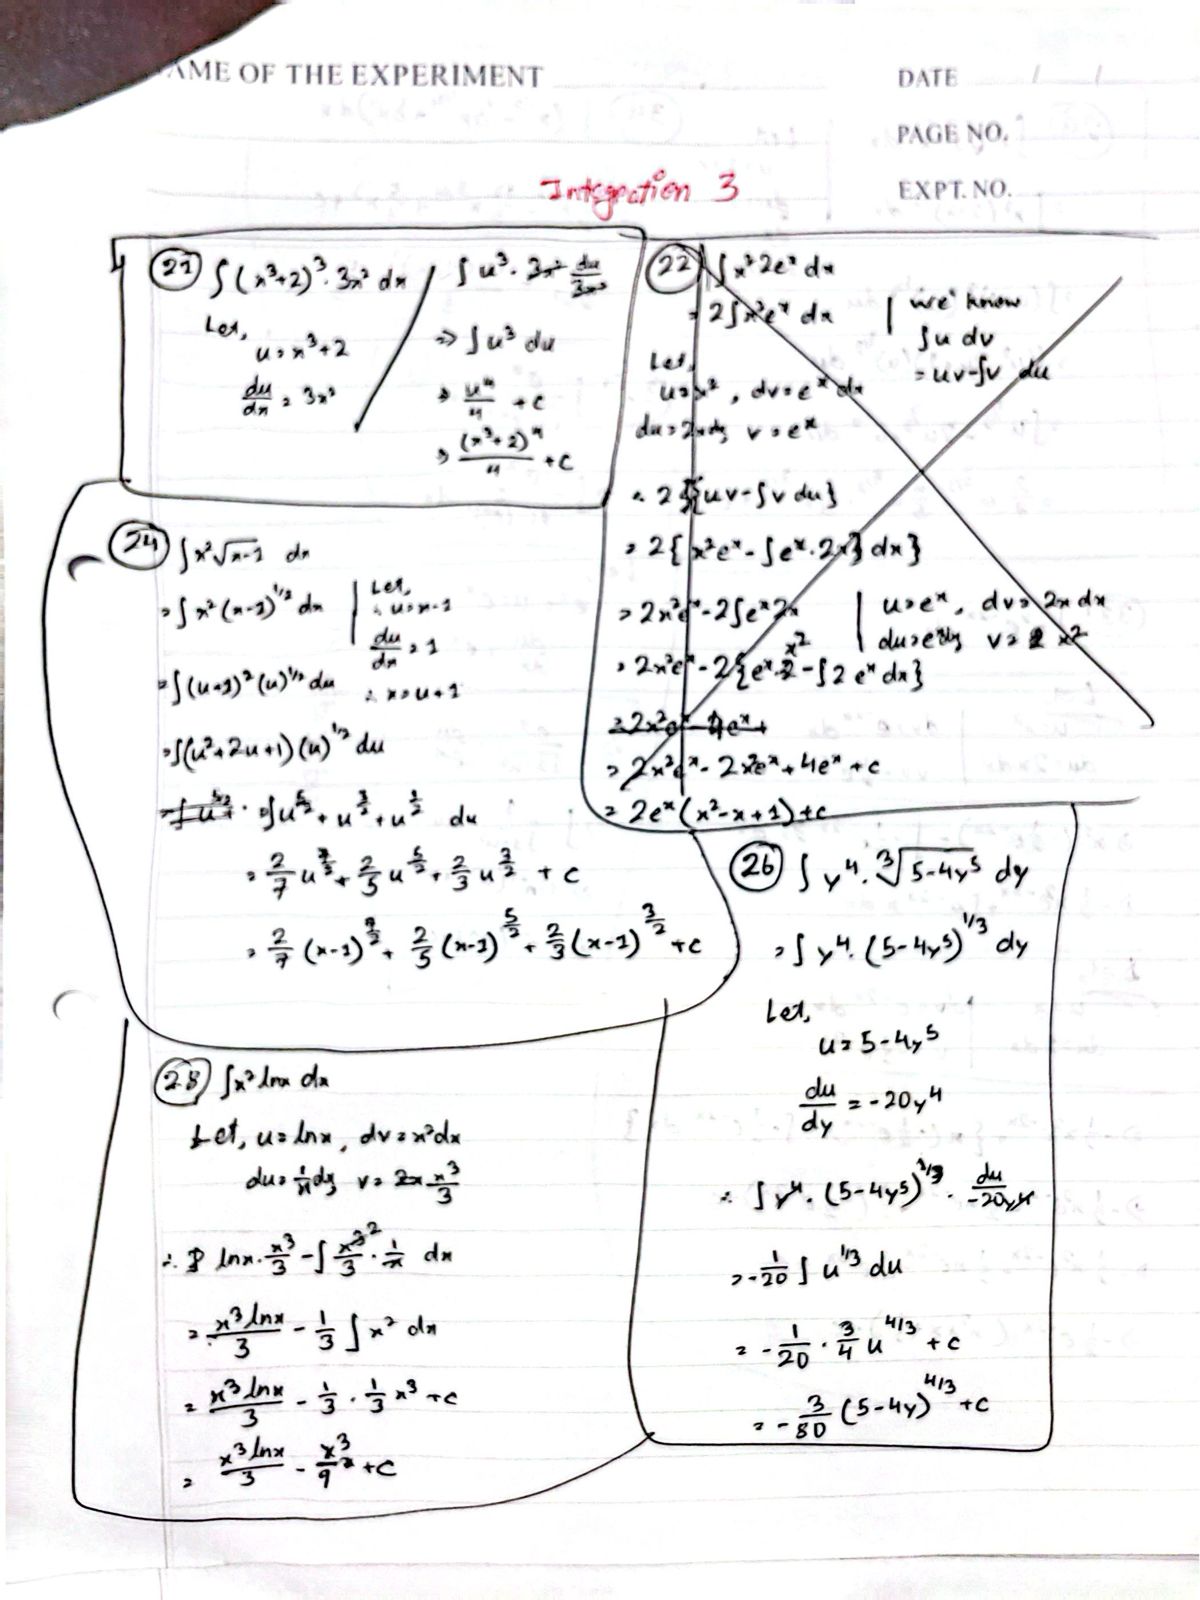 AME OF THE EXPERIMENT
DATE / /
PAGE NO.
EXPT. NO.
Integration 3
(21) ∫(x³+2)³·3x² dx
Let,
u = x³+2
du/dx = 3x²
∫u³·3x² du/3x²
⇒ ∫u³ du
⇒ u⁴/4 + c
⇒ (x³+2)⁴/4 + c
(22) ∫x² 2eˣ dx
= 2∫x²eˣ dx
we know
∫u dv
= uv-∫v du
Let,
u = x², dv = eˣ dx
du = 2x dx, v = eˣ
∴ 2{uv-∫v du}
= 2{x²eˣ - ∫eˣ·2x} dx}
= 2x²eˣ - 2∫eˣ2x
u = eˣ, dv = 2x dx
du = eˣdx, v = x²
= 2x²eˣ - 2{eˣ·x² - ∫2 eˣ dx}
= 2x²eˣ - 4eˣ+
= 2x²eˣ - 2x2eˣ + 4eˣ + c
= 2eˣ(x²-x+1)+c
(24) ∫x²√x-1 dx
= ∫x²(x-1)^1/2 dx
Let,
∴ u = x-1
du/dx = 1
∴ x = u+1
= ∫(u+1)²(u)^1/2 du
= ∫(u²+2u+1)(u)^1/2 du
= ∫u^5/2 + u^3/2 + u^1/2 du
= 2/7 u^7/2 + 2/5 u^5/2 + 2/3 u^3/2 + c
= 2/7 (x-1)^7/2 + 2/5 (x-1)^5/2 + 2/3 (x-1)^3/2 + c
(26) ∫y⁴·∛5-4y⁵ dy
= ∫y⁴·(5-4y⁵)^1/3 dy
Let,
u = 5-4y⁵
du/dy = -20y⁴
∴ ∫y⁴·(5-4y⁵)^1/3 · du/-20y⁴
= -1/20 ∫u^1/3 du
= -1/20 · 3/4 u^4/3 + c
= -3/80 (5-4y)^4/3 + c
(28) ∫x² lnx dx
Let, u = lnx, dv = x²dx
du = 1/x dx, v = x³/3
∴ lnx·x³/3 - ∫x³/3·1/x dx
= x³lnx/3 - 1/3 ∫x² dx
= x³lnx/3 - 1/3·1/3 x³ + c
= x³lnx/3 - x³/9 + c